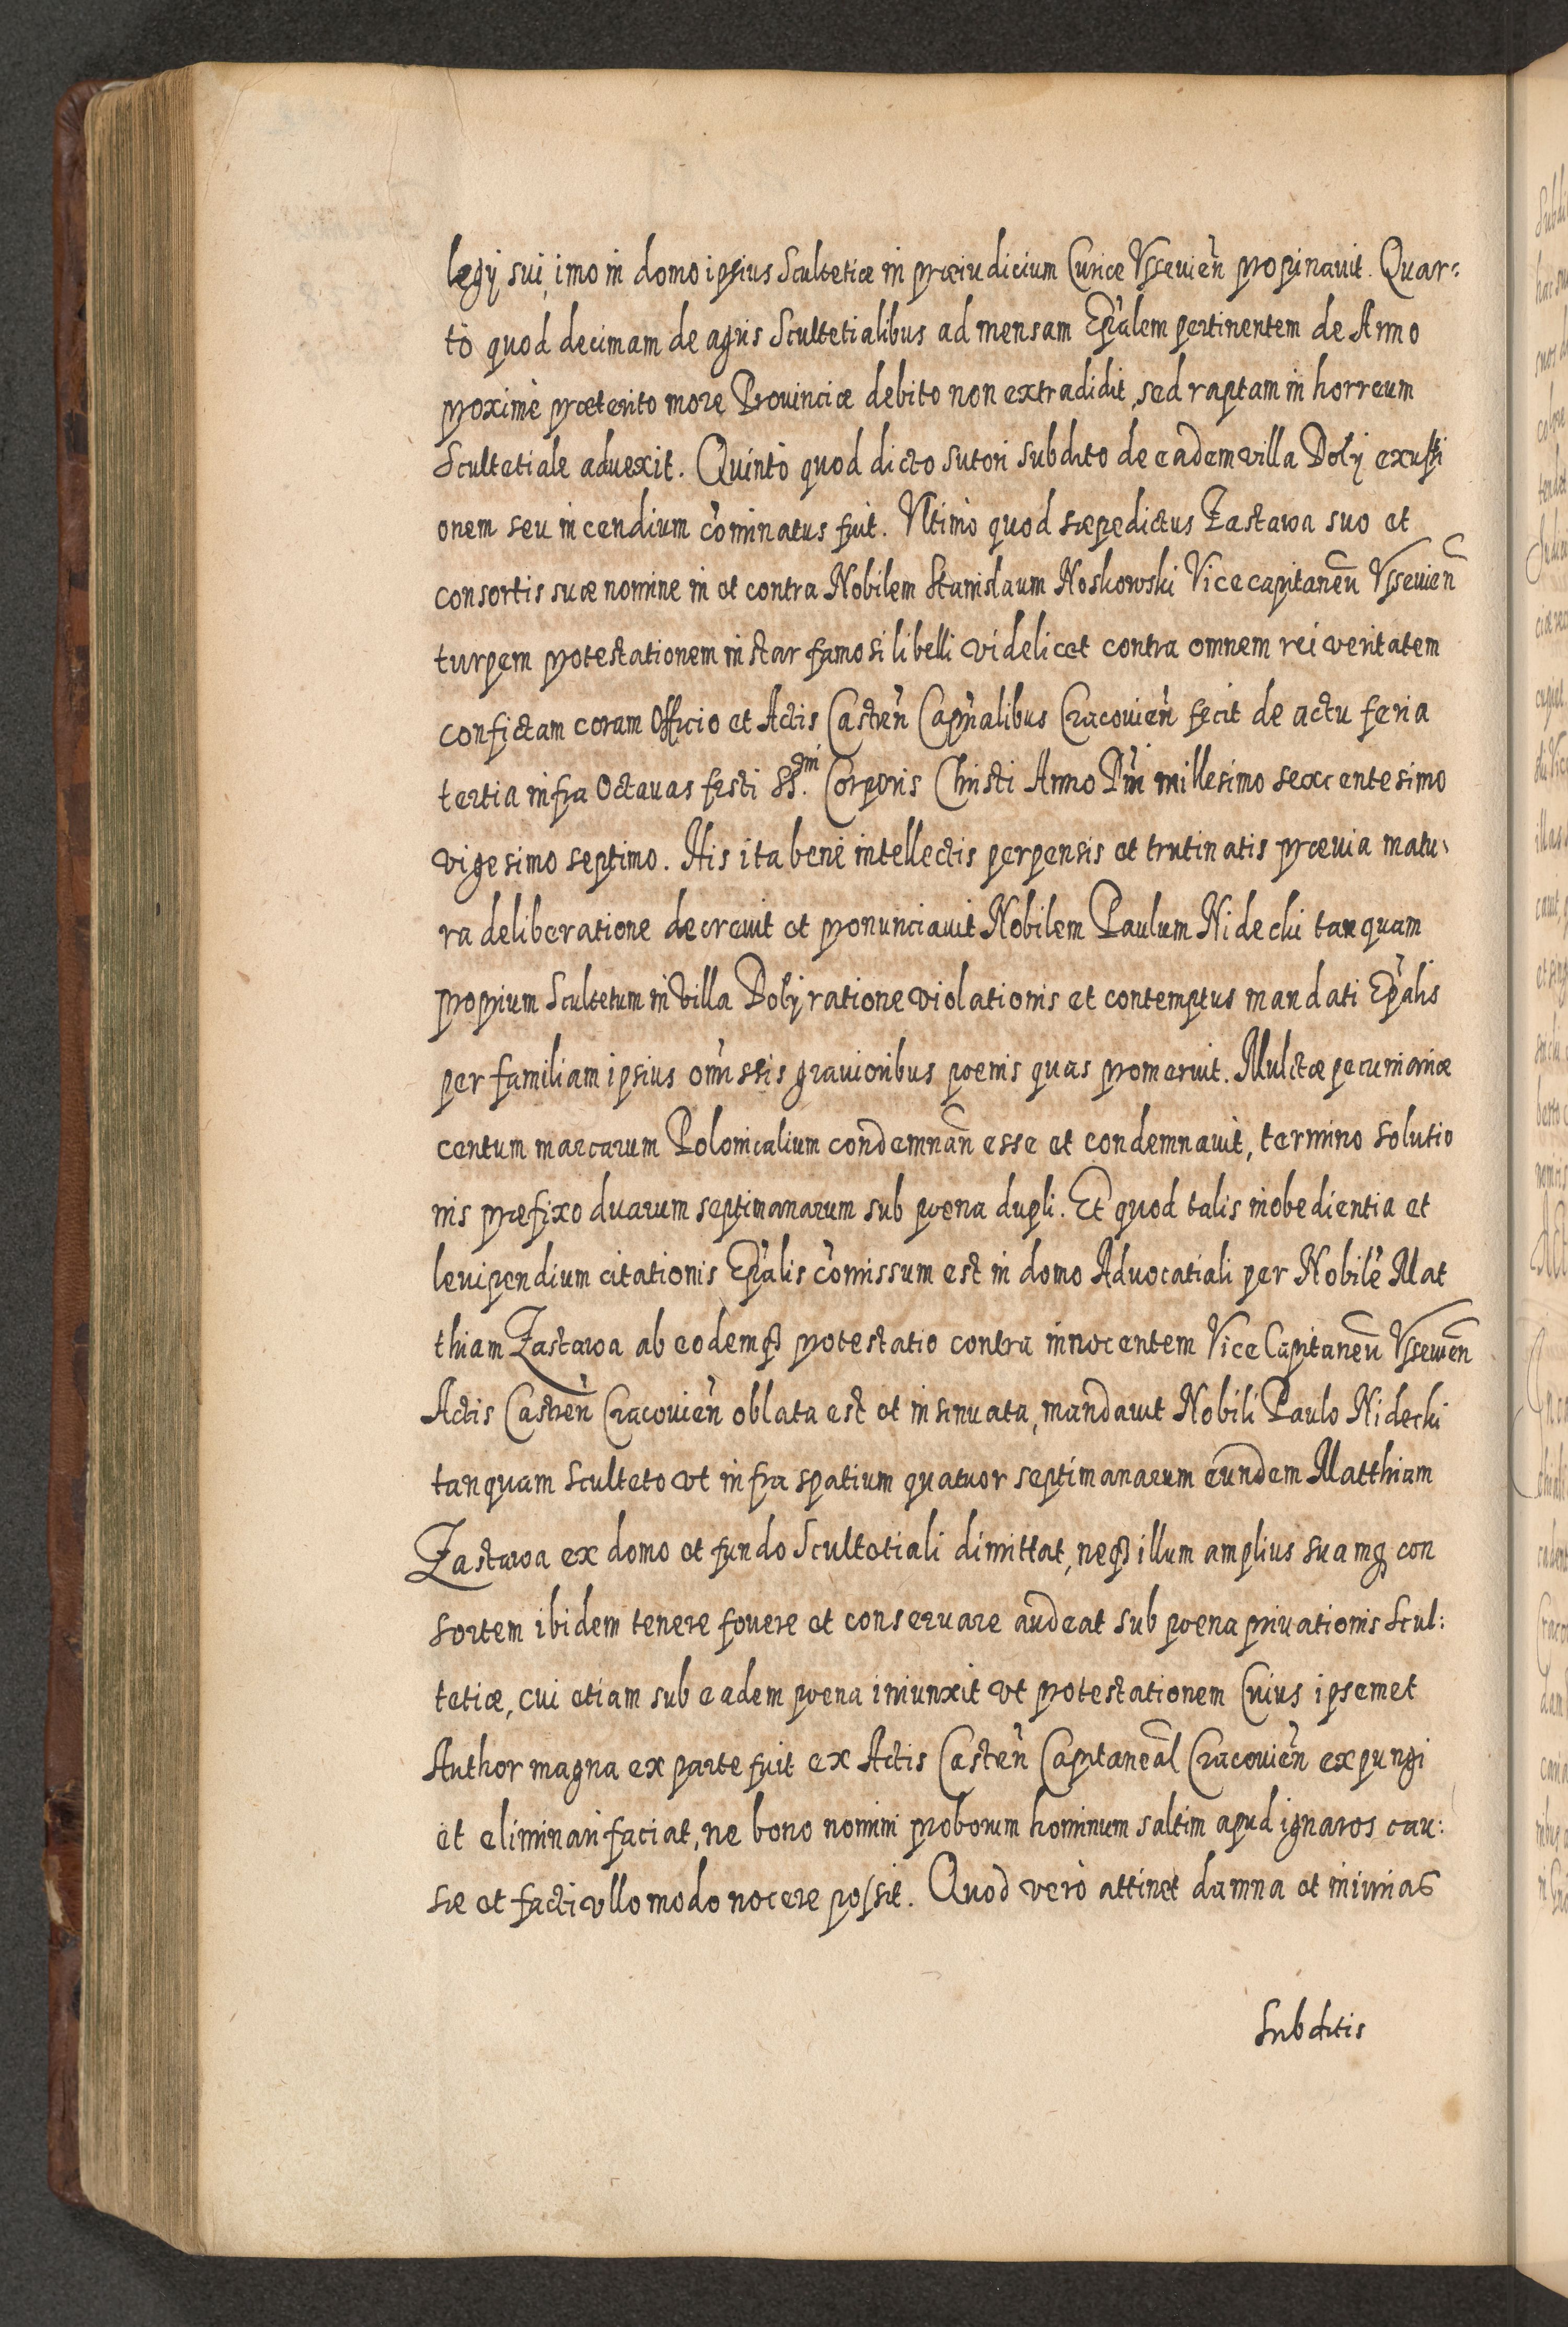 legÿ sui, imo in domo ipsius Scultetiæ in præiudicium Curiæ Vssevień propinavit. Quar:
tò quod decimam de agris Scultetialibus ad mensam Ep̃alem pertinentem de Anno
proximè præterito more Provinciæ debito non extradidit, sed raptam in horreum
Scultetiale advexit. Quintò quod dicto sutori subdito de eadem villa Dolÿ exusti
onem seu incendium cõminatus fuit. Vltimò quod sæpedictus Zastawa suo et
consortis suæ nomine in et contra Nobilem Stanislaum Noskowski Vicecapitaneũ Vsseuień
turpem protestationem instar famosi libelli videlicet contra omnem rei veritatem
confictam coram Officio et Actis Castreń Capñalibus Cracovień fecit de actu feria
tertia infra Octavas festi SS.mi Corporis Christi Anno Dñi millesimo sexcentesimo
vigesimo septimo. His ita benè intellectis perpensis et trutinatis prævia matu,
ra deliberatione decrevit et pronunciavit Nobilem Paulum Nidecki tanquam
proprium Scultetum in villa Dolÿ ratione violationis et contemptus mandati Ep̃alis
per familiam ipsius om̃issis gravioribus poenis quas promeruit. Mulctæ pecuniariæ
centum marcarum Polonicalium condemnañ esse et condemnavit, termino solutio
nis præfixo duarum septimanarum sub poena dupli. Et quod talis inobedientia et
levipendium citationis Ep̃alis cõmissum est in domo Advocatiali per Nobilẽ Mat
thiam Zastawa ab eodemq3 protestatio contra innocentem Vice Capitaneũ Vsseuień
Actis Castreń Cracovień oblata est et insinuata, mandavit Nobili Paulo Nidecki
tanquam Sculteto vt infra spatium quatuor septimanarum eundem Matthiam
Zastawa ex domo et fundo Scultetiali dimittat, neq3 illum amplius suamq3 con
sortem ibidem tenere fovere et conservare audeat sub poena privationis Scul:
tetiæ, cui etiam sub eadem poena iniunxit vt protestationem Cuius ipsemet
Author magna ex parte fuit ex Actis Castreń Capitaneal̃ Cracovień expungi
et eliminari faciat, ne bono nomini proborum hominum saltim apud ignaros cau:
sæ et facti vllo modo nocere possit. Quod verò attinet damna et iniurias
Subditis